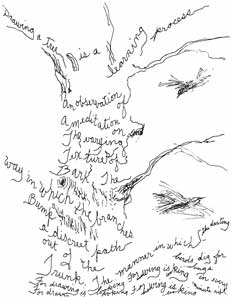 Drawing a Tree is a learning process
An observation of
A meditation on
The varying
Texture of
Bark The
Way in which the branches
Bump
a discreet path
out of the
Trunk The manner in which the darting
birds dig for
bugs
For drawing is For wing is king in very
For drawing is looking For wing is king